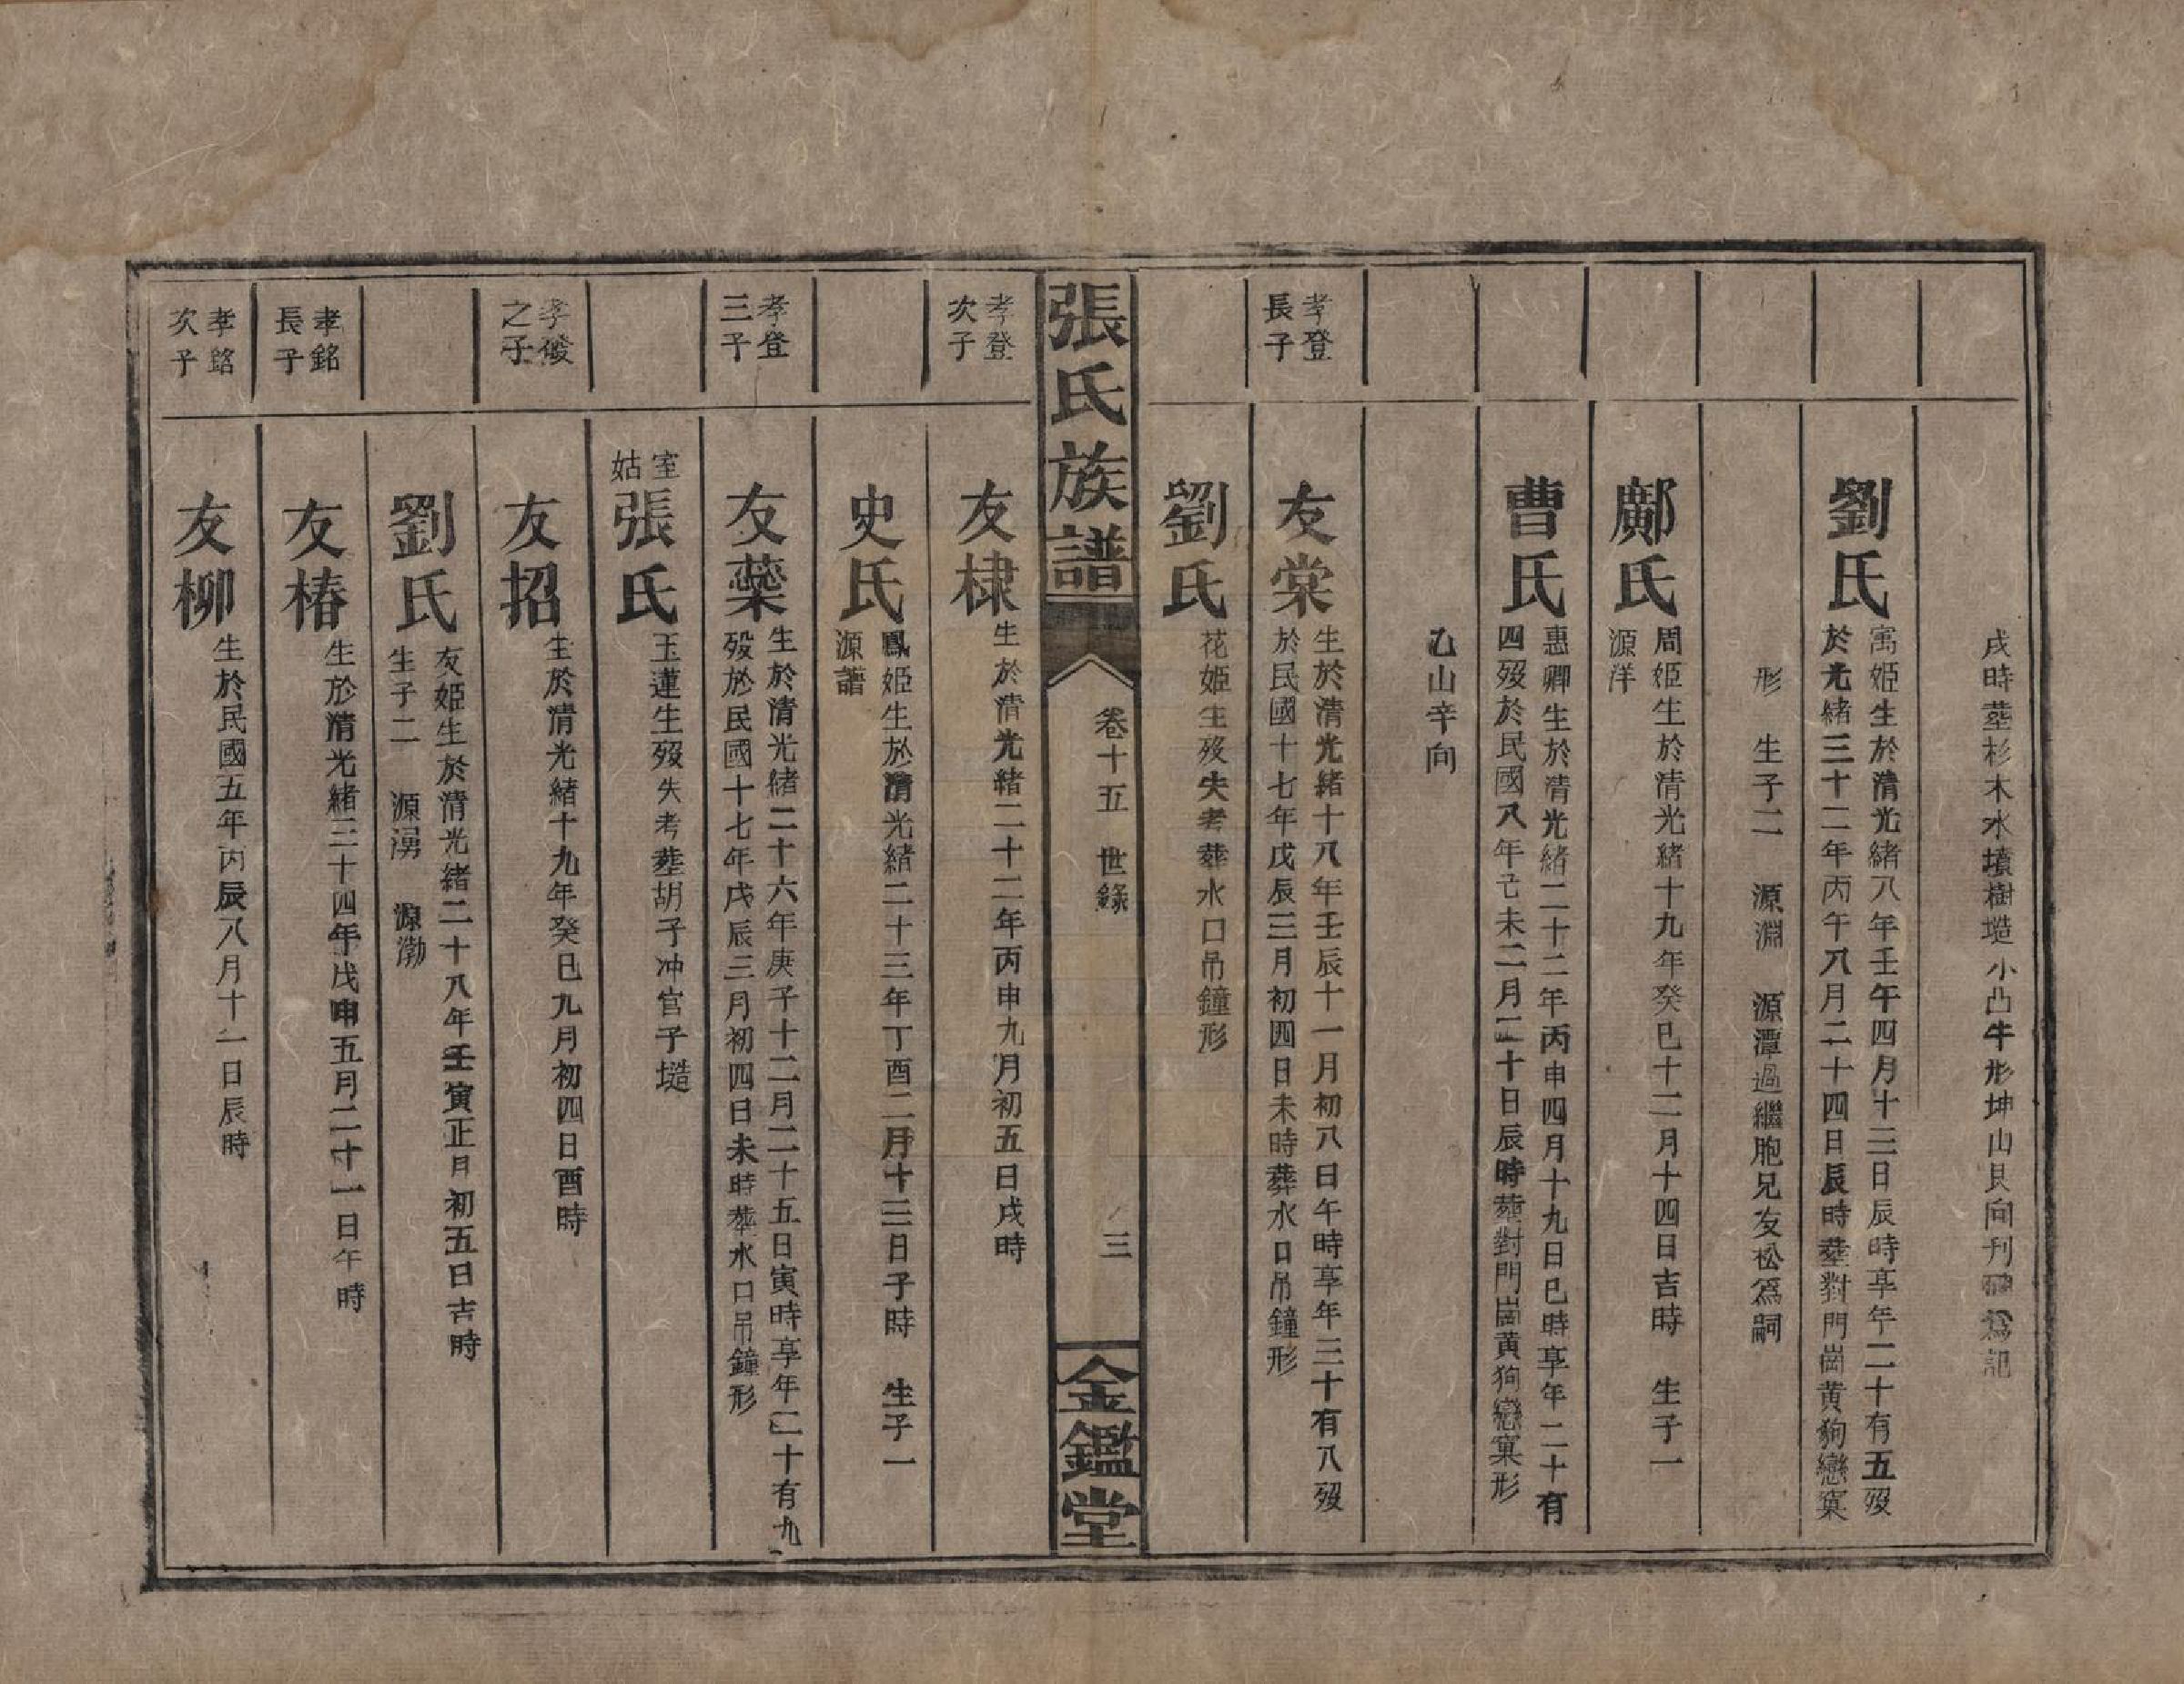 戌時葬杉木水墳樹塔小凸牛形坤山艮向刊碑為記
劉氏
寓姬生於清光緒八年壬午四月十三日辰時享年二十有五歿
於光緒三十二年丙午八月二十四日辰時葬對門崗黃狗戀窠
形　生子二　源淵　源潭過繼胞兄友松為嗣
鄺氏
周姬生於清光緒十九年癸巳十二月十四日吉時　生子一
源洋
曹氏
惠卿生於清光緒二十二年丙申四月十九日巳時享年二十有
四歿於民國八年己未二月二十日辰時葬對門崗黃狗戀窠形
乙山辛向
孝登
長子
友棠
生於清光緒十八年壬辰十一月初八日午時享年三十有八歿
於民國十七年戊辰三月初四日未時葬水口吊鐘形
劉氏
花姬生歿失考葬水口吊鐘形
張氏族譜
卷十五　世錄
三
金鑑堂
孝登
次子
友棣
生於清光緒二十二年丙申九月初五日戌時
史氏
鳳姬生於清光緒二十三年丁酉二月十三日子時　生子一
源譜
孝登
三子
友蘂
生於清光緒二十六年庚子十二月二十五日寅時享年二十有九
歿於民國十七年戊辰三月初四日未時葬水口吊鐘形
室
姑
張氏
玉蓮生歿失考葬胡子冲官子塔
孝俊
之子
友招
生於清光緒十九年癸巳九月初四日酉時
劉氏
友姬生於清光緒二十八年壬寅正月初五日吉時
生子二　源湧　源渤
孝銘
長子
友椿
生於清光緒三十四年戊申五月二十一日午時
孝銘
次子
友柳
生於民國五年丙辰八月十一日辰時